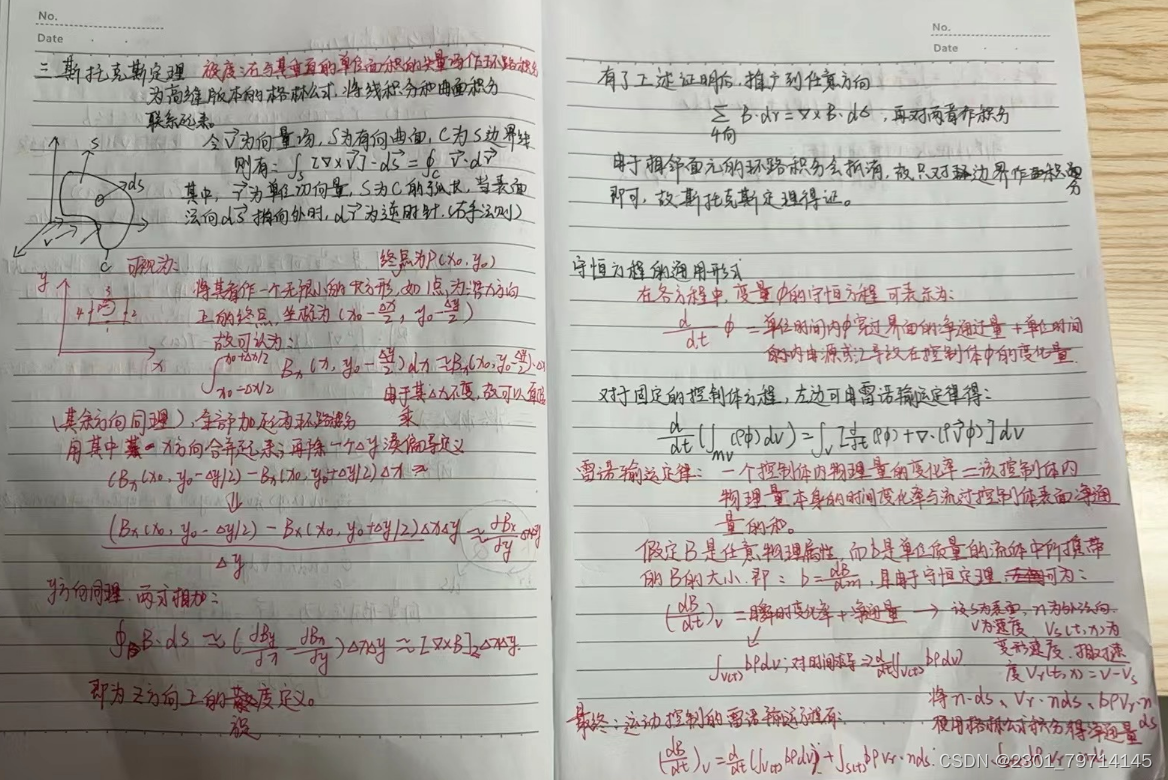 No.
Date
三 斯托克斯定理 旋度:在与其垂直的单位面积的矢量场作环路积分
为高维版本的格林公式,将线积分和曲面积分
联系起来。
令V为向量场, S为有向曲面, C为S边界线
则有: ∫s [∇×V]·dS = ∮c V·dr
其中, r为单位切向量, S为C的弧长, 当表面
法向dS指向外时, dr为逆时针.(右手法则)
S
ds
v
C
可视为:
终点为P(x0, y0)
y
将其看作一个无限小的长方形, 如1点为沿x方向
上的终点, 坐标为(x0-Δx/2, y0-Δy/2)
3
4
2
1
x
故可认为:
∫_{x0-Δx/2}^{x0+Δx/2} Bx(x, y0-Δy/2)dx ≈ Bx(x0, y0-Δy/2)·Δx
由于其Δx不变, 故可以直接
乘
(其余方向同理), 全部加起为环路积分
用其中 x方向合并起来, 再除一个Δy 凑偏导定义
(Bx(x0, y0-Δy/2)-Bx(x0, y0+Δy/2)Δx ≈
⇓
(Bx(x0, y0-Δy/2)-Bx(x0, y0+Δy/2)ΔxΔy / Δy ≈ dBx/dy ΔxΔy
y方向同理, 两式相加:
∮B·ds ≈ (dBy/dx - dBx/dy)ΔxΔy ≈ [∇×B]z ΔxΔy.
即为z方向上的旋度定义。
No.
Date
有了上述证明后, 推广到任意方向
Σ_{4向} B·dr = ∇×B·ds, 再对两者作积分
由于相邻面元的环路积分会抵消, 故只对边界作积分
即可, 故斯托克斯定理得证。
守恒方程的通用形式
在各方程中, 变量φ的守恒方程可表示为:
d/dt φ = 单位时间内φ穿过界面的净通过量+单位时间
的内由源或汇导致在控制体中的变化量
对于固定的控制体方程, 左边可由雷诺输运定律得:
d/dt(∫mv (ρφ)dv) = ∫v [d/dt(ρφ)+∇·(ρVφ)]dv
雷诺输运定律: 一个控制体内物理量的变化率=该控制体内
物理量本身的时间变化率与流过控制体表面净通
量的和。
假定B是任意物理属性, 而b是单位质量的流体中所携带
的B的大小. 即: b = dB/dm, 具用于守恒定理 可为:
(dB/dt)v = 瞬时变化率+净通量 → 设S为表面, n为外法向
V为速度 Vs(t,x)为
变形速度, 相对速
度Vr(t,x)=V-Vs
∫v(t) bρdv; 对时间求导 ⇒ d/dt(∫v(t) bρdv)
将n·ds、Vr·nds、bρVr·nds
使用格林公式积分得净通量
最终: 运动控制的雷诺输运方程有:
(dB/dt)v = d/dt(∫v(t) bρdv) + ∫s(t) bρVr·nds.
CSDN @2301_79714145